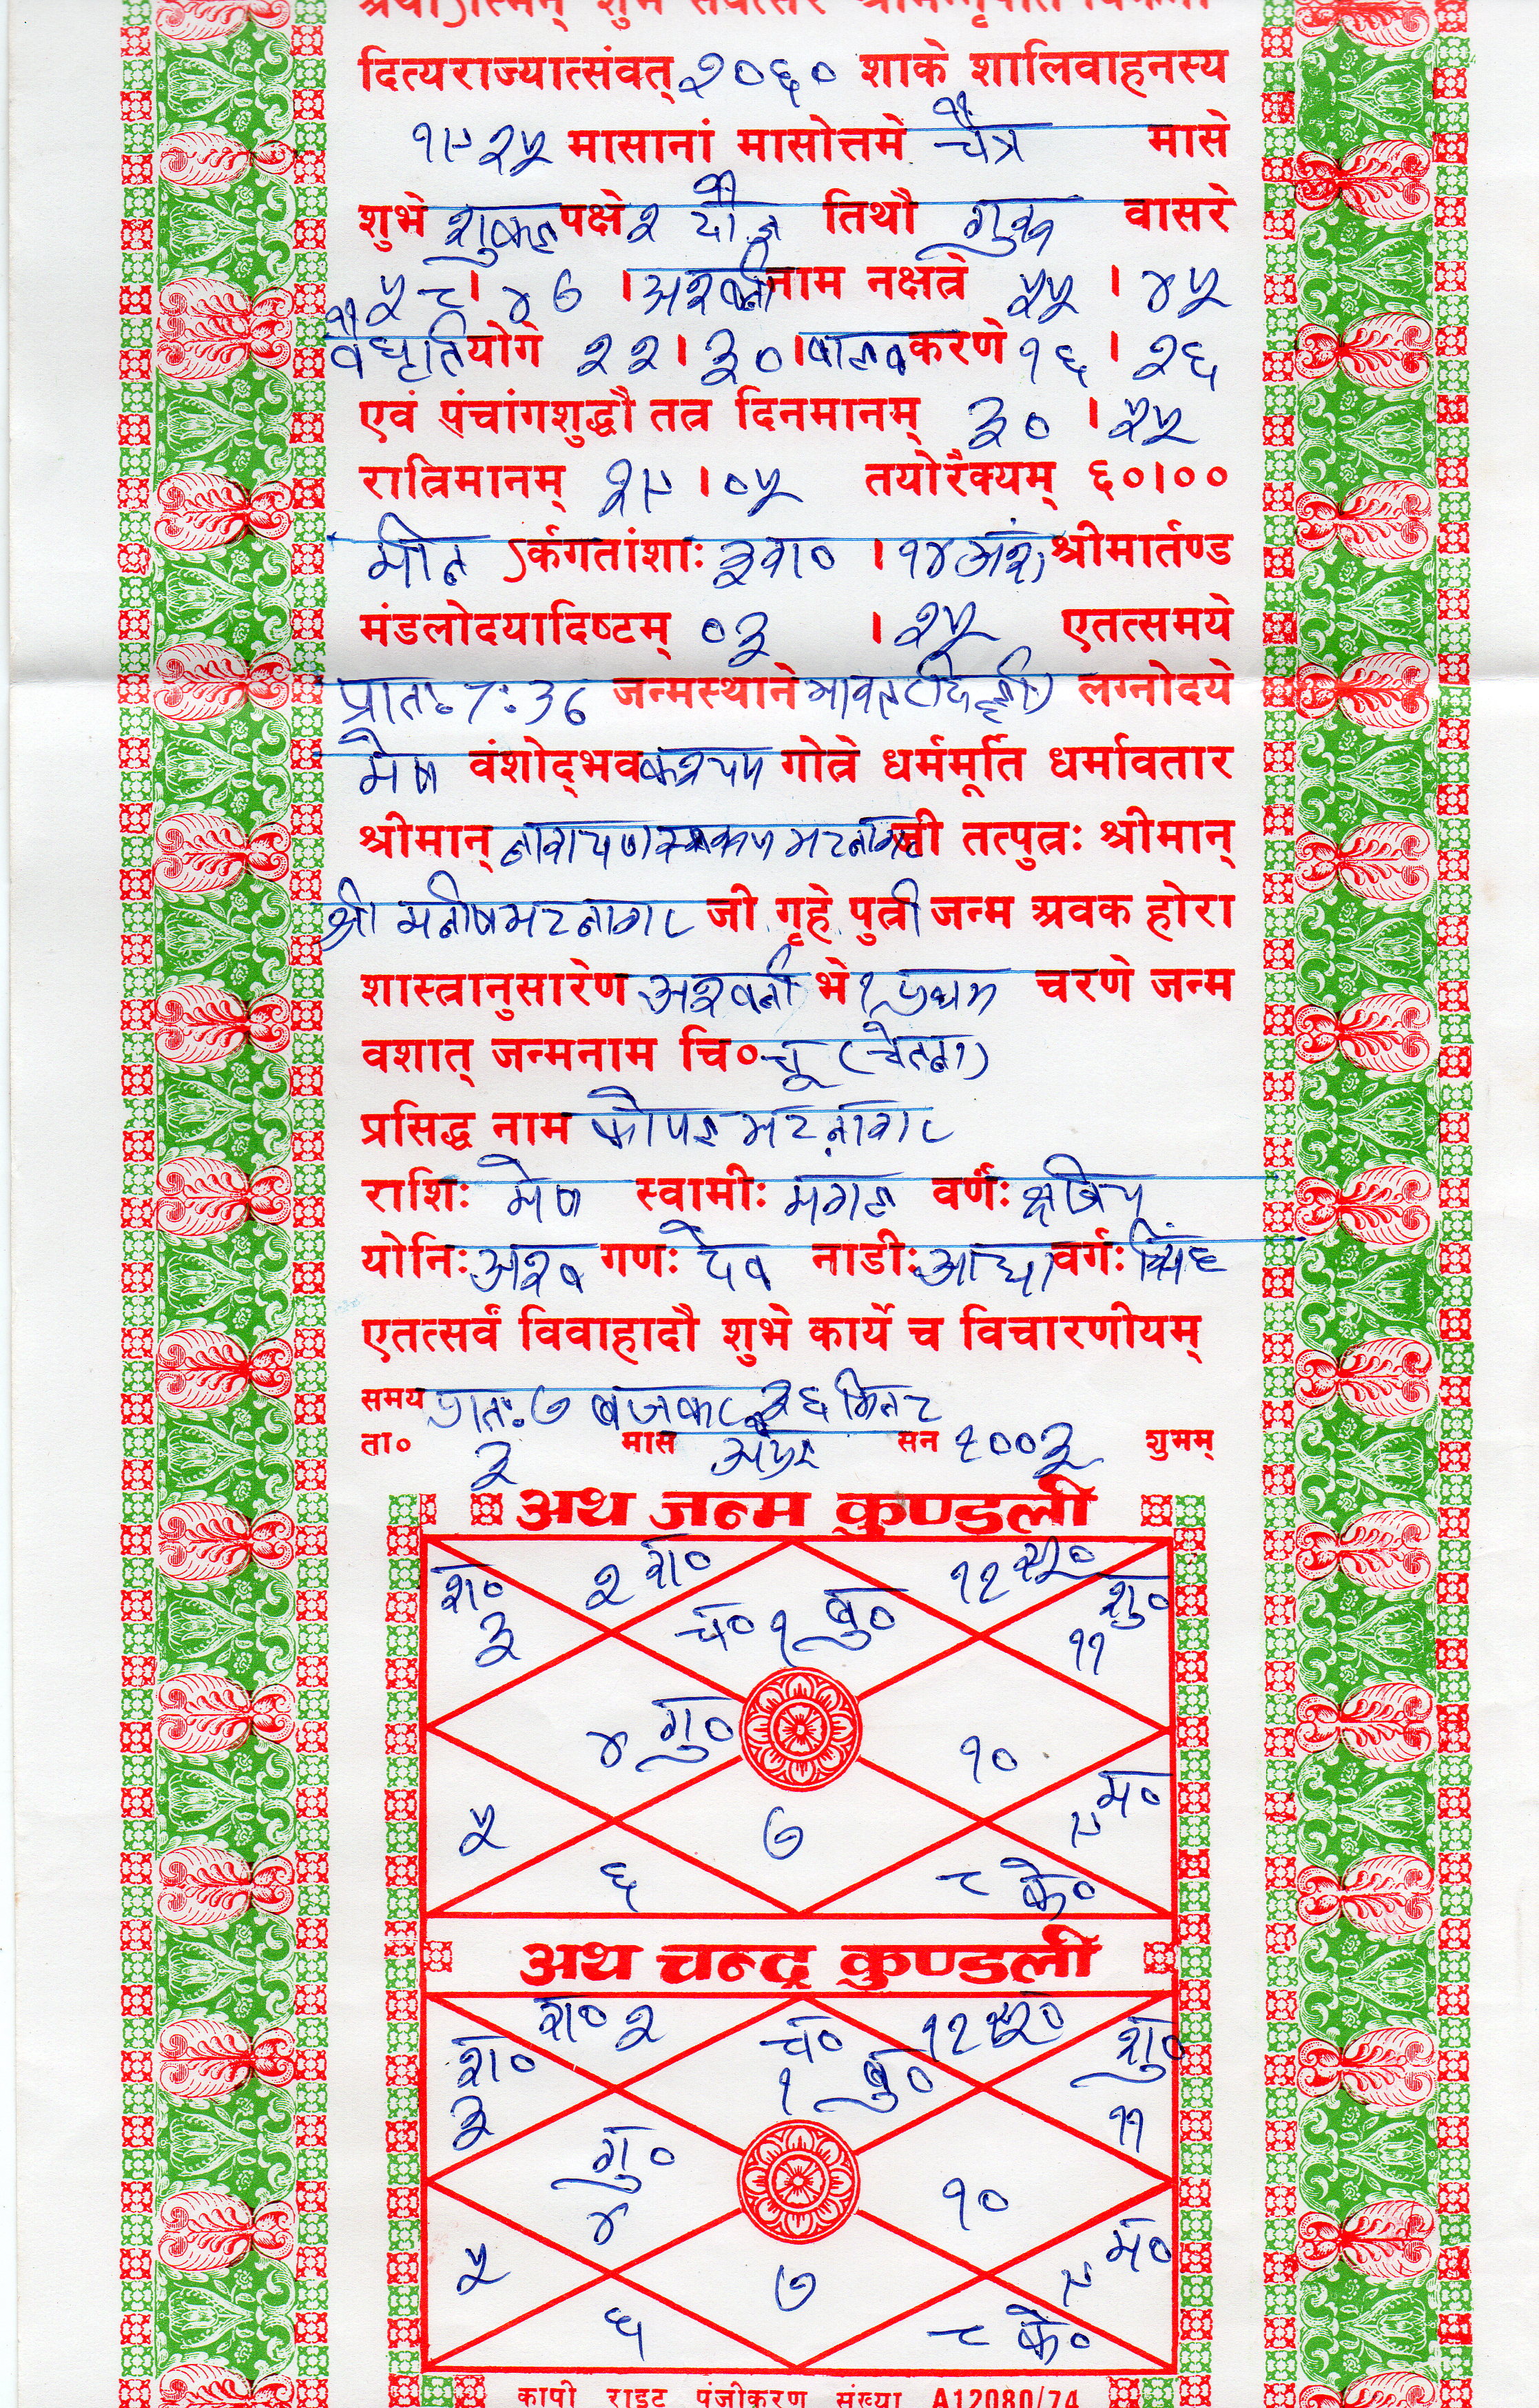 दित्यराज्यात्संवत् २०६० शाके शालिवाहनस्य
१९२५ मासानां मासोत्तमे चैत्र मासे
शुभे शुक्ल पक्षे २ दौज तिथौ गुरू वासरे
५८ । ४७ । अश्वनी नाम नक्षत्रे ५५ । ४५
वैधृति योगे २२ । ३० । बालव करणे १६ । २६
एवं पंचांगशुद्धौ तत्र दिनमानम् ३० । ५५
रात्रिमानम् २९ । ०५ तयोरैक्यम् ६०।००
मीन ऽर्कगतांशाः । १४ अंश श्रीमार्तण्ड
मंडलोदयादिष्टम् ०३ । २५ एतत्समये
प्रातः 7:36 जन्मस्थाने लग्नोदये
मेष वंशोद्भव कश्यप गोत्रे धर्ममूर्ति धर्मावतार
श्रीमान् नारायण स्वरूप भटनागर जी तत्पुत्रः श्रीमान्
श्री मनीष भटनागर जी गृहे पुत्री जन्म अवक होरा
शास्त्रानुसारेण अश्वनी भे १ प्रथम चरणे जन्म
वशात् जन्मनाम चि० चू (चेतना)
प्रसिद्ध नाम कोपल भटनागर
राशिः मेष स्वामीः मंगल वर्णः क्षत्रिय
योनिः अश्व गणः देव नाडीः आद्या वर्गः सिंह
एतत्सर्वं विवाहादौ शुभे कार्ये च विचारणीयम्
समय प्रातः ७ बजकर ३६ मिनट
ता० ३ मास अप्रैल सन २००३ शुभम्
अथ जन्म कुण्डली
श० २ रा० १२ सू० शु०
३ चं० १ बु० ११
४ गु० १०
५ ७ ९ मं०
६ ८ के०
अथ चन्द्र कुण्डली
रा० २ चं० १२ सू० शु०
श० १ बु०
३ ११
गु०
४ १०
५ ७ ९ मं०
६ ८ के०
कापी राइट पंजीकरण संख्या A12080/74